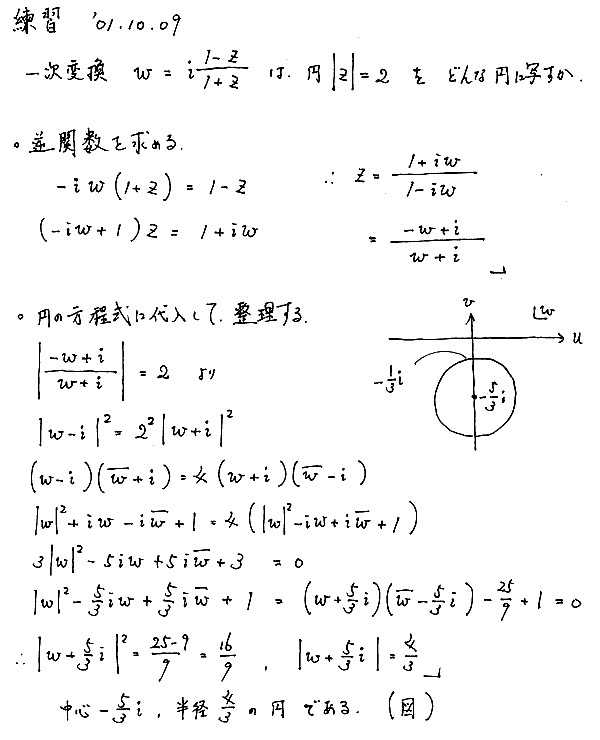 練習 '01.10.09
一次変換 w = i (1-z)/(1+z) は、円 |z| = 2 を どんな円に写すか.
。逆関数を求める.
-iw(1+z) = 1-z
(-iw+1)z = 1+iw
∴ z = (1+iw)/(1-iw)
= (-w+i)/(w+i)
。円の方程式に代入して、整理する.
|(-w+i)/(w+i)| = 2 より
|w-i|² = 2²|w+i|²
(w-i)(w̅+i) = 4(w+i)(w̅-i)
|w|²+iw-iw̅+1 = 4(|w|²-iw+iw̅+1)
3|w|²-5iw+5iw̅+3 = 0
|w|²-5/3 iw+5/3 iw̅+1 = (w+5/3 i)(w̅-5/3 i)-25/9+1=0
∴ |w+5/3 i|² = (25-9)/9 = 16/9 , |w+5/3 i| = 4/3
中心 -5/3 i , 半径 4/3 の円である. (図)
v
w
u
-1/3 i
-5/3 i